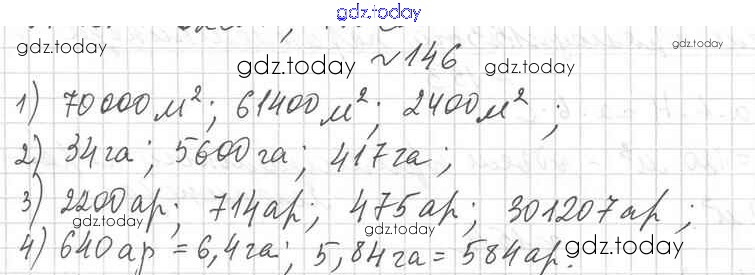 gdz.today
gdz.today gdz.today gdz.today gdz.today
№146
1) 70000 м²; 61400 м²; 2400 м²;
2) 34 га; 5600 га; 417 га;
3) 2200 ар; 714 ар; 475 ар; 301207 ар;
gdz.today gdz.today gdz.today
4) 640 ар = 6,4 га; 5,84 га = 584 ар.